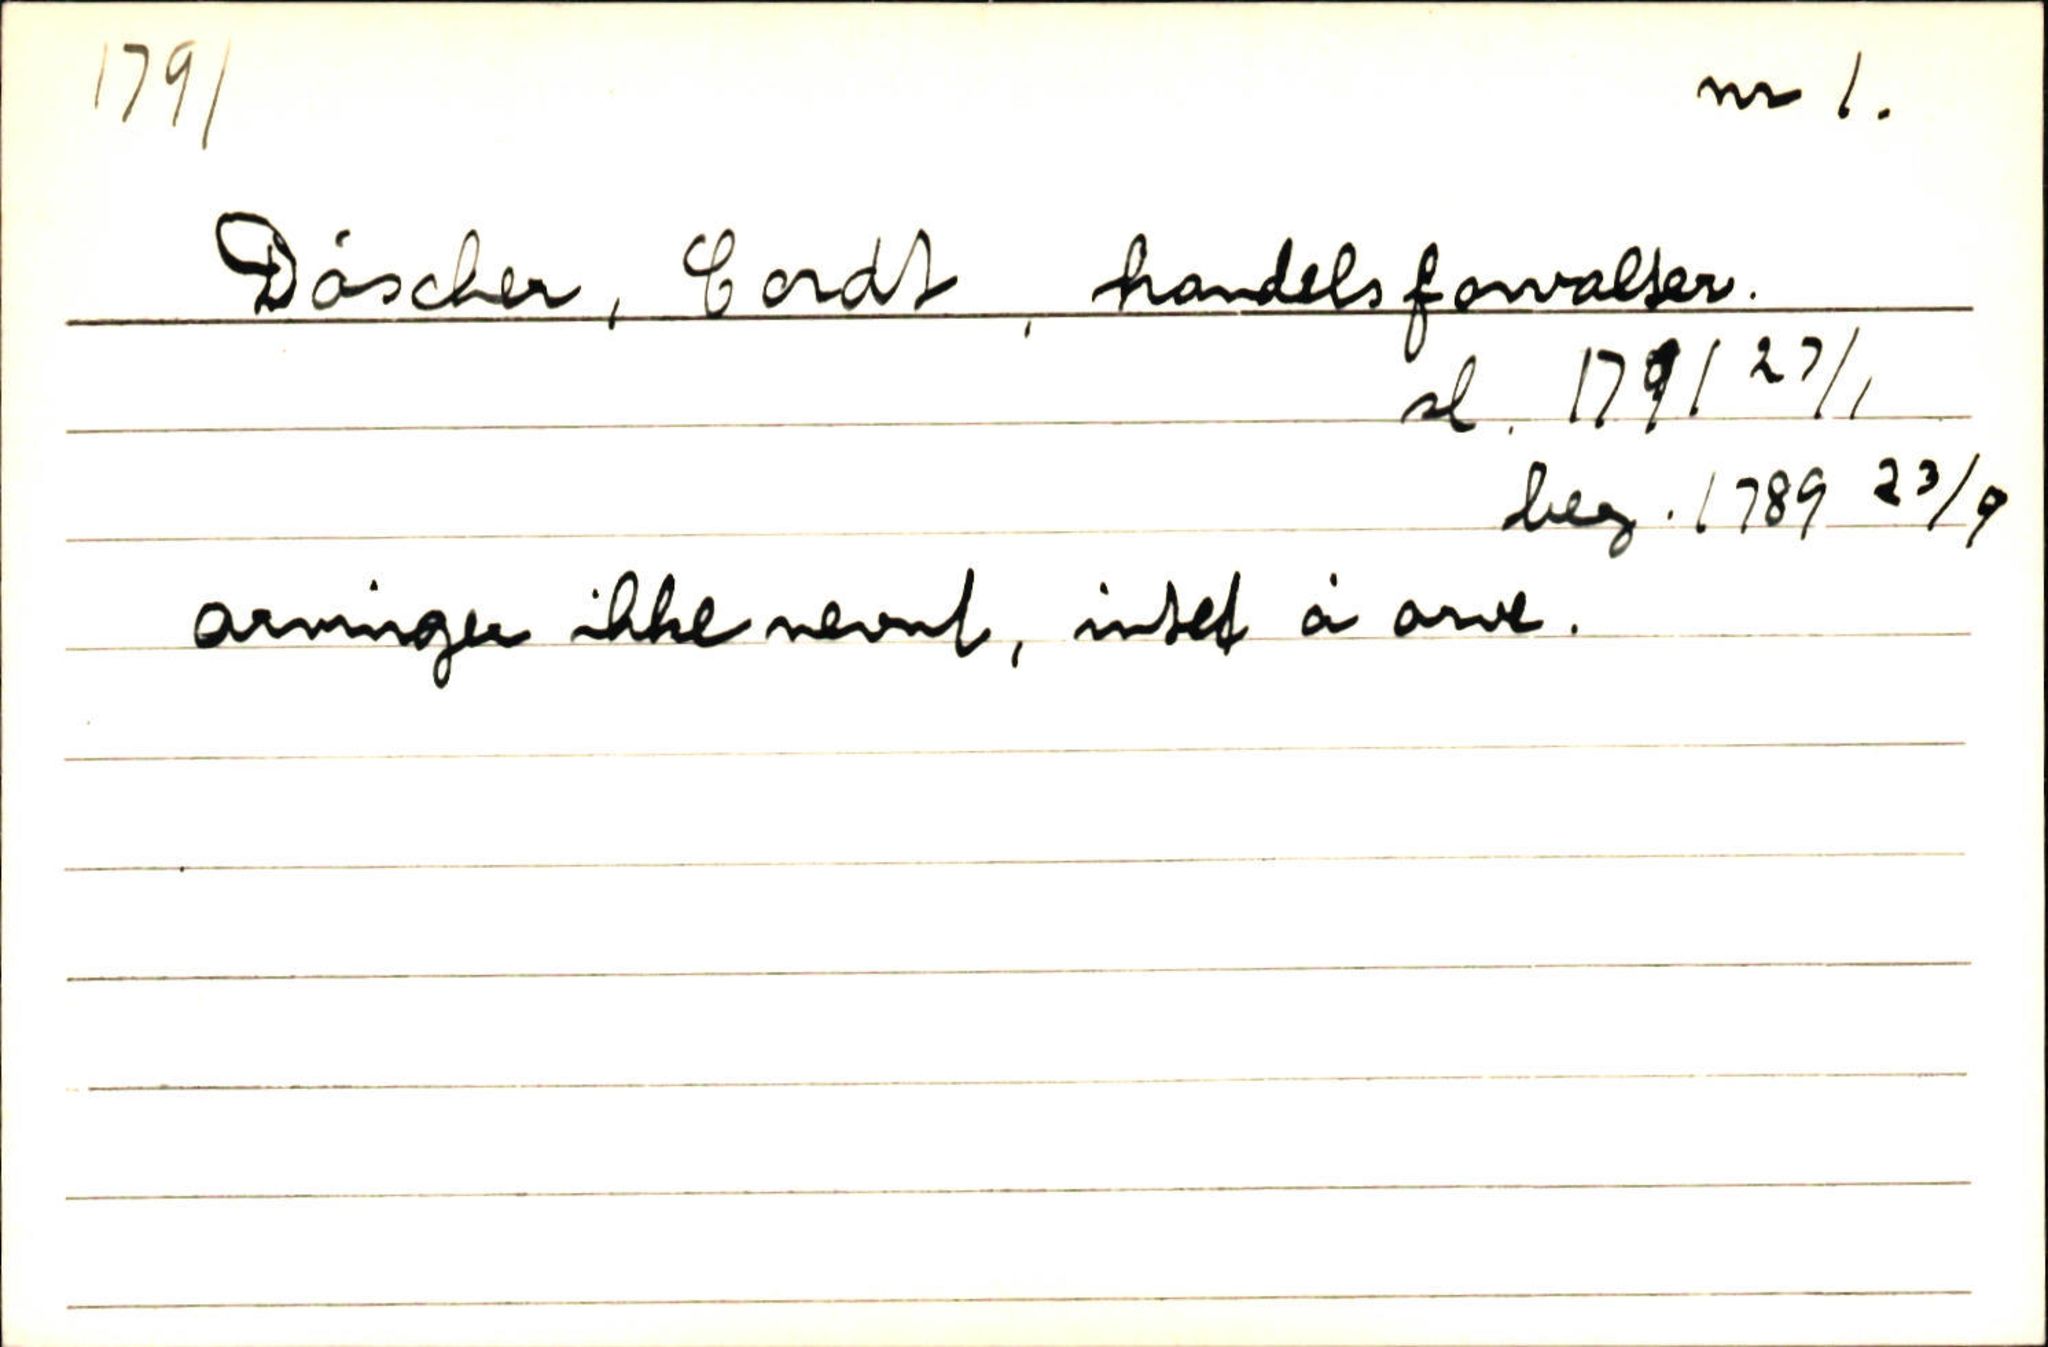 1791 nr 1.
Döscher, Cordt, handelsforvalter.
sl. 1791 27/1
beg. 1789 23/9
arvinger ikke nevnt, intet å arve.